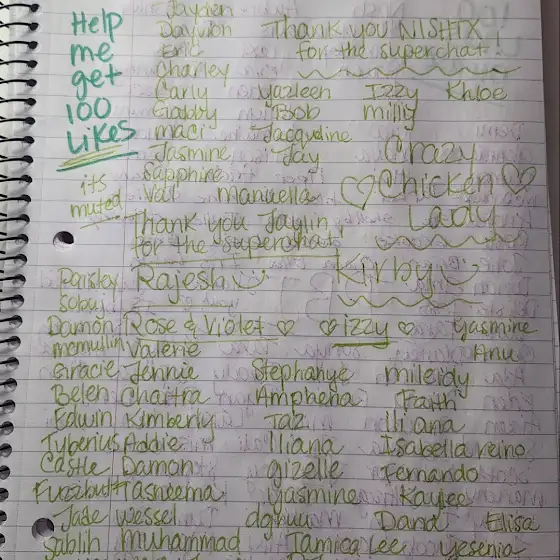 Help
me
get
100
Likes
its
muted
Jayden
Dayvion
Eric
Charley
Carly
Gabby
maci
Jasmine
Sapphire
Val
manuella
Thank you NISHTX !
for the superchat!
yazleen Izzy Khloe
Bob milly
Jacqueline
Jay
Crazy
Chicken
Lady
Thank you Jaylin
for the superchat
Paisley Rajesh Kirby
Damon Rose & Violet izzy Yasmine
mcmullin Valerie Anu
Gracie Jennie Stephanye mileidy
Belen Chaitra Amphena Faith
Edwin Kimberly Taz Iliana
Tyberius Addie Iliana Isabella reino
Castle Damon gizelle Fernando
Fuzzbutt Tasneema Yasmine Kaylee
Jade wessel David Elisa
muhammad Tamica Lee Yesenia